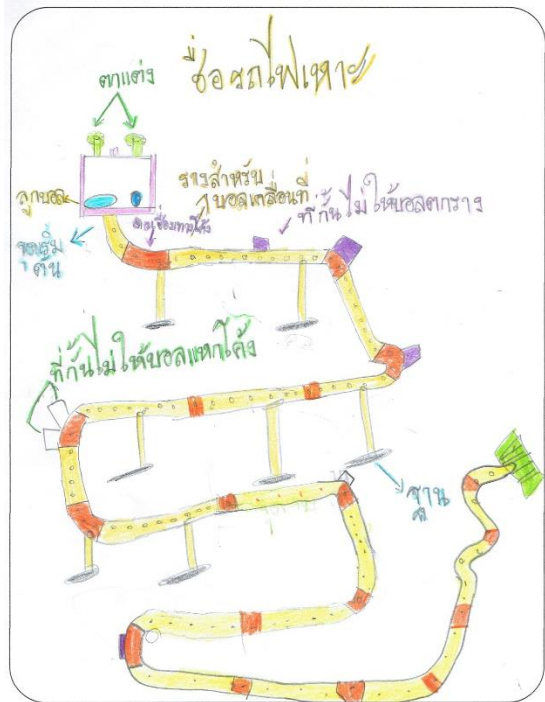 ชื่อรถไฟเหาะ
ตาแต่ง
ลูกบอล
จุดเริ่ม
ต้น
รางสำหรับ
ลูกบอลเคลื่อนที่
ที่กั้นไม่ให้บอลตกราง
ที่กั้นไม่ให้บอลแหกโค้ง
ฐาน